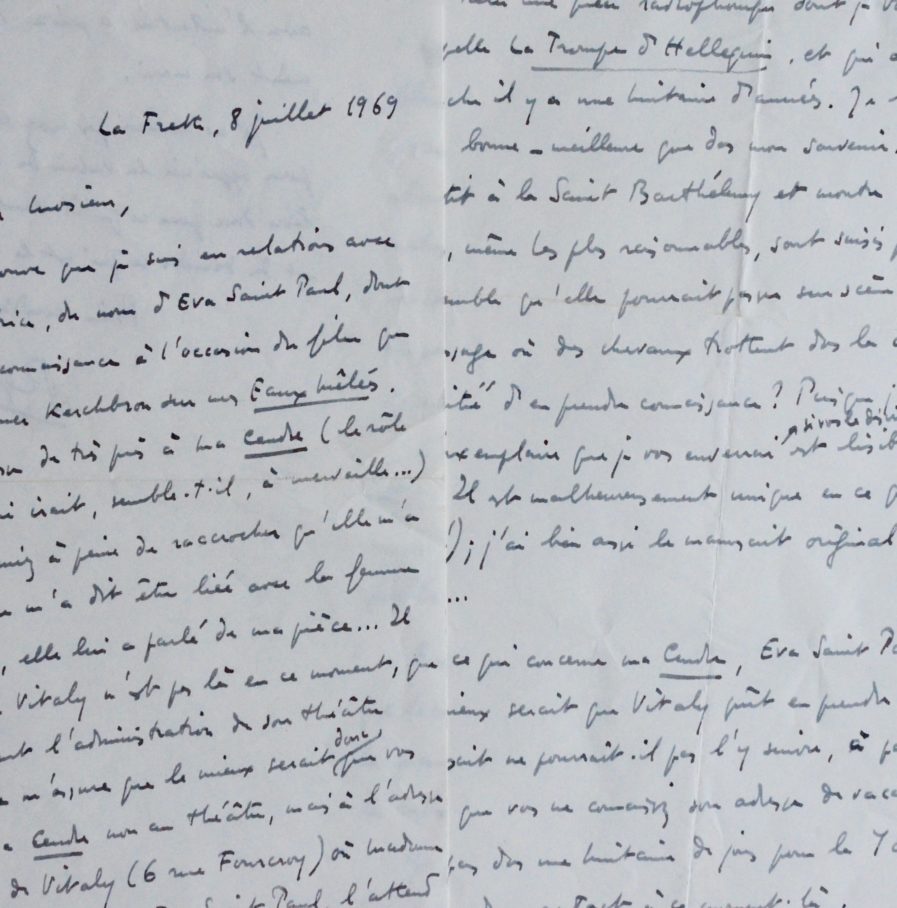 La Frette, 8 juillet 1969
monsieur,
que je suis en relations avec
du nom d'Eva Saint Paul, dont
connaissance à l'occasion du film que
Kerchbron sur mes Eaux mêlées.
de très près à ma Cendre (le rôle
irait, semble-t-il, à merveille...)
à peine de raccrocher qu'elle m'a
m'a dit être liée avec la femme
, elle lui a parlé de ma pièce... Il
Vitaly n'est pas là en ce moment, que
l'administration de son théâtre
m'assure que le mieux serait donc que vous
Cendre non au théâtre, mais à l'adresse
de Vitaly (6 rue Fourcroy) où madame
Saint Paul, l'attend
une pièce radiophonique dont je
La Troupe d'Hellequin, et qui
il y a une huitaine d'années. Je
bonne – meilleure que dans mon souvenir.
à la Saint Barthélemy et montre
, même les plus raisonnables, sont saisis
qu'elle pourrait passer sur scène
où des chevaux trottent dans la
d'en prendre connaissance ? Puisque
si vous le
que je vous enverrai est
Il est malheureusement unique en ce
); j'ai bien aussi le manuscrit original
...
ce qui concerne ma Cendre, Eva Saint
serait que Vitaly pût en prendre
ne pourrait-il pas l'y suivre, à
que vous ne connaissiez son adresse de
pas dans une huitaine de jours pour le
à ce moment-là.